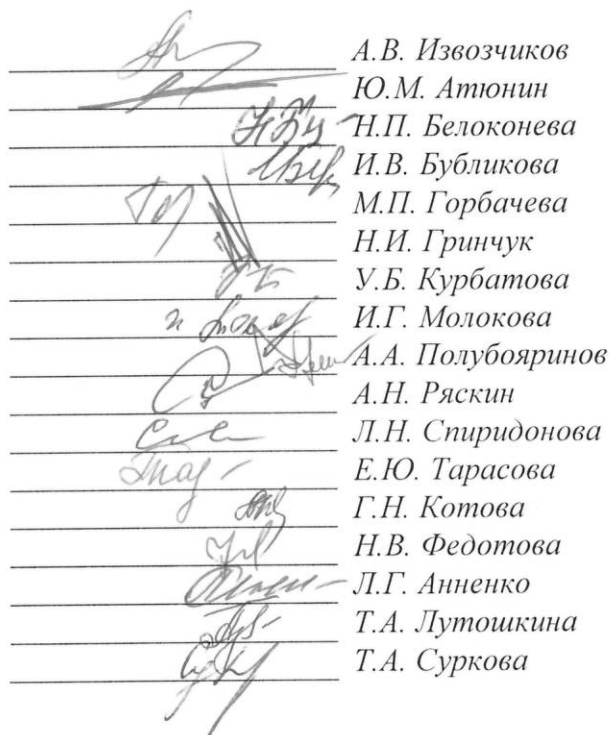 А.В. Извозчиков
Ю.М. Атюнин
Н.П. Белоконева
И.В. Бубликова
М.П. Горбачева
Н.И. Гринчук
У.Б. Курбатова
И.Г. Молокова
А.А. Полубояринов
А.Н. Ряскин
Л.Н. Спиридонова
Е.Ю. Тарасова
Г.Н. Котова
Н.В. Федотова
Л.Г. Анненко
Т.А. Лутошкина
Т.А. Суркова